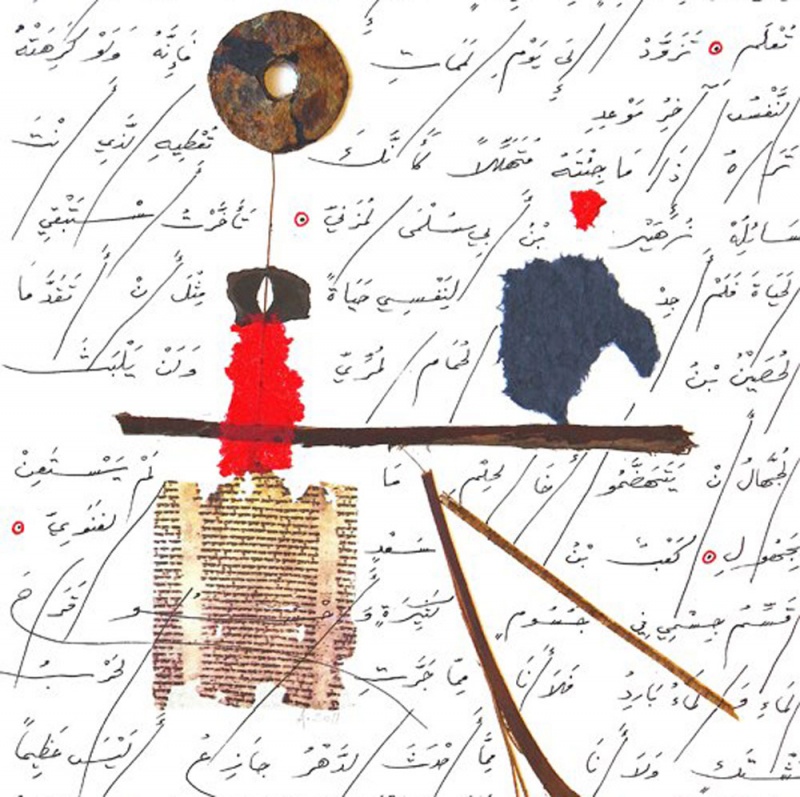 تَعْلَم تَزَوَّدْ إلَى يَوْمِ المَمَاتِ فَإِنَّهُ وَلَوْ كَرِهَتْهُ
النَّفْسُ آخِرُ مَوْعِدِ
تَرَاهُ إذَا مَا جِئْتَهُ مُتَهَلِّلاً كَأَنَّكَ تُعْطِيهِ الَّذِي أَنْتَ
سَائِلُهْ زُهَيْر بْنُ أبِي سُلْمَى المُزَنِيّ تَأَخَّرْتُ أَسْتَبْقِي
الحَيَاةَ فَلَمْ أَجِدْ لِنَفْسِي حَيَاةً مِثْلَ أَنْ أَتَقَدَّمَا
الحُصَيْنُ بْنُ الحُمَام المُرِّيّ وَلَنْ يَلْبَثَ
الجُهَّالُ أنْ يَتَهَضَّمُوا أَخَا الحِلْمِ مَا لَمْ يَسْتَعِنْ
بِجَهُولِ كَعْبُ بْنُ سَعْدٍ الغَنَوِيّ
أُقَسِّمُ جِسْمِي فِي جُسُومٍ كَثِيرَةٍ وَأَحْسُو قَرَاحَ
المَاءِ وَالمَاءُ بَارِدُ فَلَا أَنَا مِمَّا جَرَّتِ الحَرْبُ
وَلَا أَنَا مِمَّا أَحْدَثَ الدَّهْرُ جَازِعُ أَلَيْسَ عَظِيماً